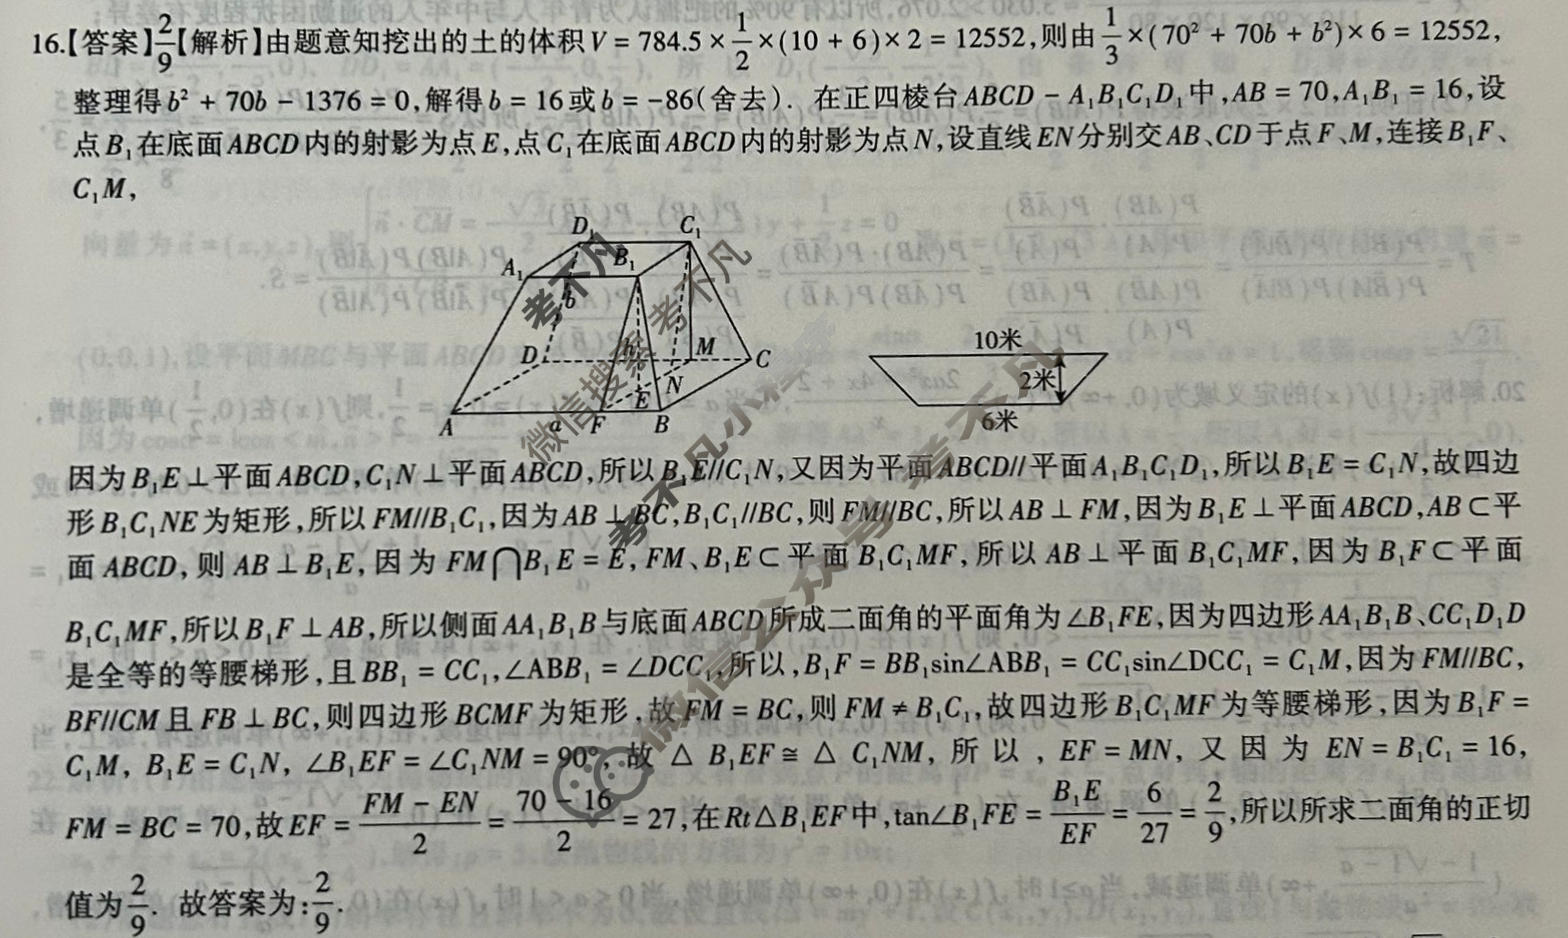 16.【答案】2/9【解析】由题意知挖出的土的体积V = 784.5 × 1/2 × (10 + 6) × 2 = 12552,则由 1/3 × (70² + 70b + b²) × 6 = 12552,
整理得b² + 70b - 1376 = 0,解得b = 16或b = -86(舍去). 在正四棱台ABCD - A₁B₁C₁D₁中,AB = 70,A₁B₁ = 16,设
点B₁在底面ABCD内的射影为点E,点C₁在底面ABCD内的射影为点N,设直线EN分别交AB、CD于点F、M,连接B₁F、
C₁M,
D₁ C₁
A₁ B₁
b
D h M C
N
E
A a F B
10米
2米
6米
因为B₁E⊥平面ABCD,C₁N⊥平面ABCD,所以B₁E//C₁N,又因为平面ABCD//平面A₁B₁C₁D₁,所以B₁E = C₁N,故四边
形B₁C₁NE为矩形,所以FM//B₁C₁,因为AB⊥BC,B₁C₁//BC,则FM//BC,所以AB⊥FM,因为B₁E⊥平面ABCD,AB⊂平
面ABCD,则AB⊥B₁E,因为FM⋂B₁E = E,FM、B₁E⊂平面B₁C₁MF,所以AB⊥平面B₁C₁MF,因为B₁F⊂平面
B₁C₁MF,所以B₁F⊥AB,所以侧面AA₁B₁B与底面ABCD所成二面角的平面角为∠B₁FE,因为四边形AA₁B₁B、CC₁D₁D
是全等的等腰梯形,且BB₁ = CC₁,∠ABB₁ = ∠DCC₁,所以,B₁F = BB₁sin∠ABB₁ = CC₁sin∠DCC₁ = C₁M,因为FM//BC,
BF//CM且FB⊥BC,则四边形BCMF为矩形,故FM = BC,则FM ≠ B₁C₁,故四边形B₁C₁MF为等腰梯形,因为B₁F =
C₁M, B₁E = C₁N, ∠B₁EF = ∠C₁NM = 90°, 故△B₁EF≅△C₁NM, 所以, EF = MN, 又因为EN = B₁C₁ = 16,
FM = BC = 70,故EF = (FM - EN)/2 = (70 - 16)/2 = 27,在Rt△B₁EF中,tan∠B₁FE = B₁E/EF = 6/27 = 2/9,所以所求二面角的正切
值为2/9. 故答案为:2/9.